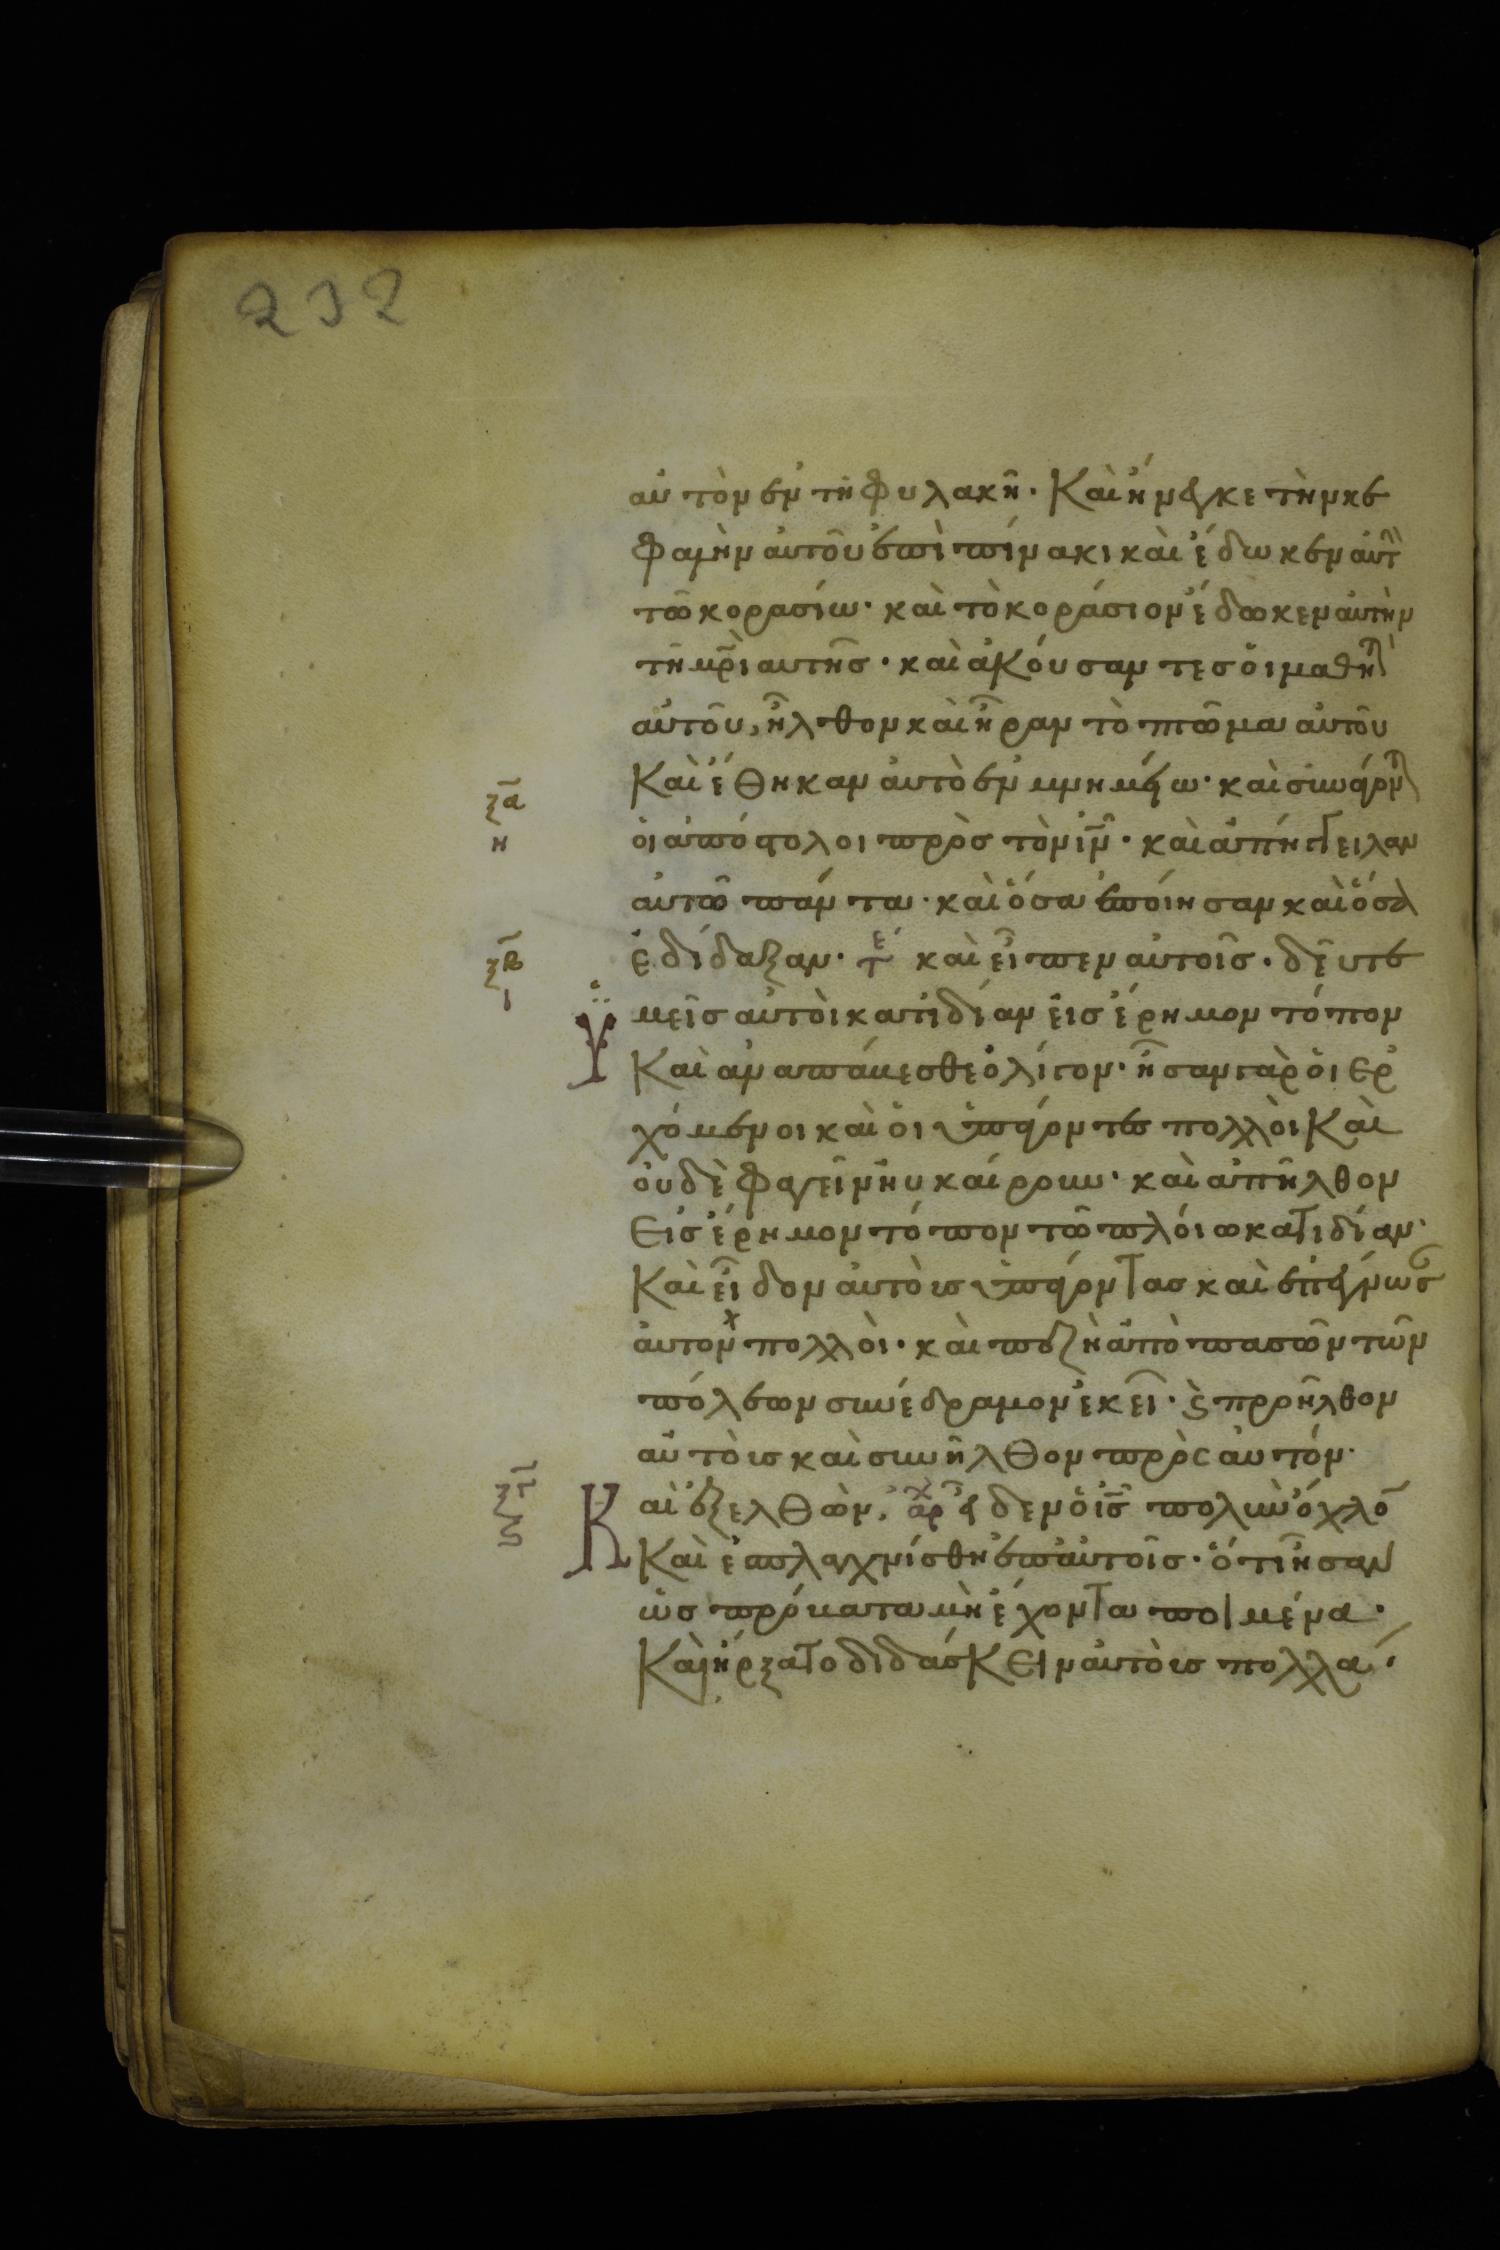 232
αὐτὸν ἐν τῆ φυλακῆ· Καὶ ἤνεγκε τὴν κε
φαλὴν αὐτοῦ ἐπὶ πίνακι καὶ ἔδωκεν αὐτ
τῶ κορασίω· καὶ τὸ κοράσιον ἔδωκεν αὐτὴν
τῆ μρ̅ὶ αυτῆσ· καὶ ἀκόυσαντεσ ὁι μαθη
αὐτοῦ, ἦλθον καὶ ἦραν τὸ πτῶμα αὐτοῦ
Καὶ ἔθηκαν ἀυτὸ ἐν μνημείω· καὶ συνάγον
ξ̅α
η
ὁι ἀπόστολοι πρὸσ τὸν ι̅ν̅· καὶ ἀπήγγειλαν
αυτῶ πάντα· καὶ ὅσα ἐποίησαν καὶ ὅσα
ξ̅β
ι
ἐδίδαξαν· τέ καὶ εἶπεν αὐτοῖσ· δεῦτε
Ὑ
μεῖσ αὐτὸι κατιδίαν ἐισ ἔρημον τόπον
Καὶ ἀναπάυεσθε ὀλίγον· ἦσαν γὰρ ὁι ἐρ
χόμενοι καὶ ὁι ὑπάγοντεσ πολλὸι Καὶ
ὀυδὲ φαγεῖν ἠυκαίρουν· καὶ ἀπῆλθον
Εἰσ ἔρημον τόπον τῶ πλόιω κατιδίαν·
Καὶ εἶδον ἀυτὸυσ ὑπάγοντασ καὶ ἐπέγνωσ
ἀυτον πολλὸι· καὶ πεζῆ ἀπὸ πασῶν τῶν
πόλεων συνέδραμον ἐκεῖ· ϗ προῆλθον
αὐτὸυσ καὶ συνῆλθον πρὸσ ἀυτόν·
ξ̅γ
ς
Κ
αὶ ἐξελθὼν, ἀρχ εἶδεν ὁ ι̅σ̅ πολὺν ὄχλο̅
Καὶ ἐσπλαγχνίσθη ἐπ' ἀυτοῖσ· ὅτι ἦσαν
ὡσ πρόβατα μὴ ἔχοντα ποιμένα·
Καὶ ἤρξατο διδάσκειν ἀυτὸυσ πολλά·